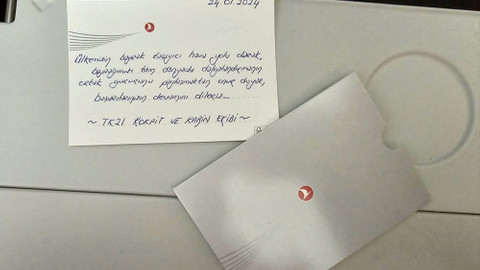 24.01.2024
Ülkemizin bayrak taşıyıcı hava yolu olarak,
bayrağımızı tüm dünyada dalgalandırmanın
haklı gururunu paylaşmaktan onur duyar,
başarılarınızın devamını dileriz...
~ TK21 KOKPİT VE KABİN EKİBİ ~